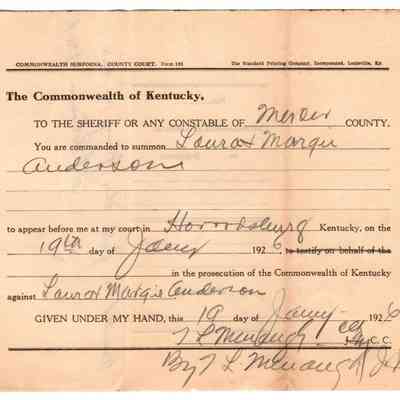 COMMONWEALTH SUBPOENA, COUNTY COURT. Form 101 The Standard Printing Company, Incorporated, Louisville, Ky.
The Commonwealth of Kentucky,
TO THE SHERIFF OR ANY CONSTABLE OF Mercer COUNTY.
You are commanded to summon Laura & Margie
Anderson
to appear before me at my court in Harrodsburg Kentucky, on the
19th day of Jany 1926 to testify on behalf of the
in the prosecution of the Commonwealth of Kentucky
against Laura & Margie Anderson
GIVEN UNDER MY HAND, this 19 day of Jany 1926
C. C.
By